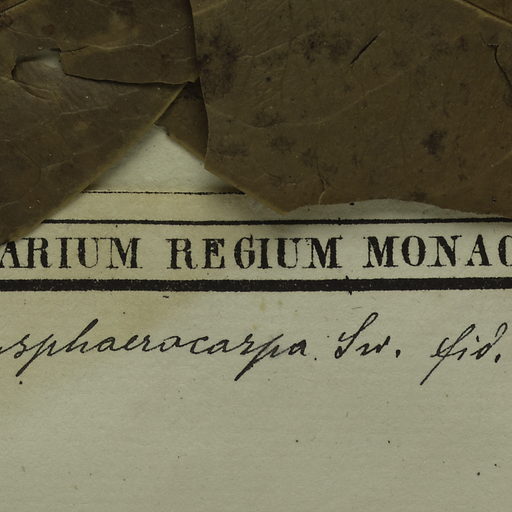 ARIUM REGIUM MONAC
sphaerocarpa Sw. fid.